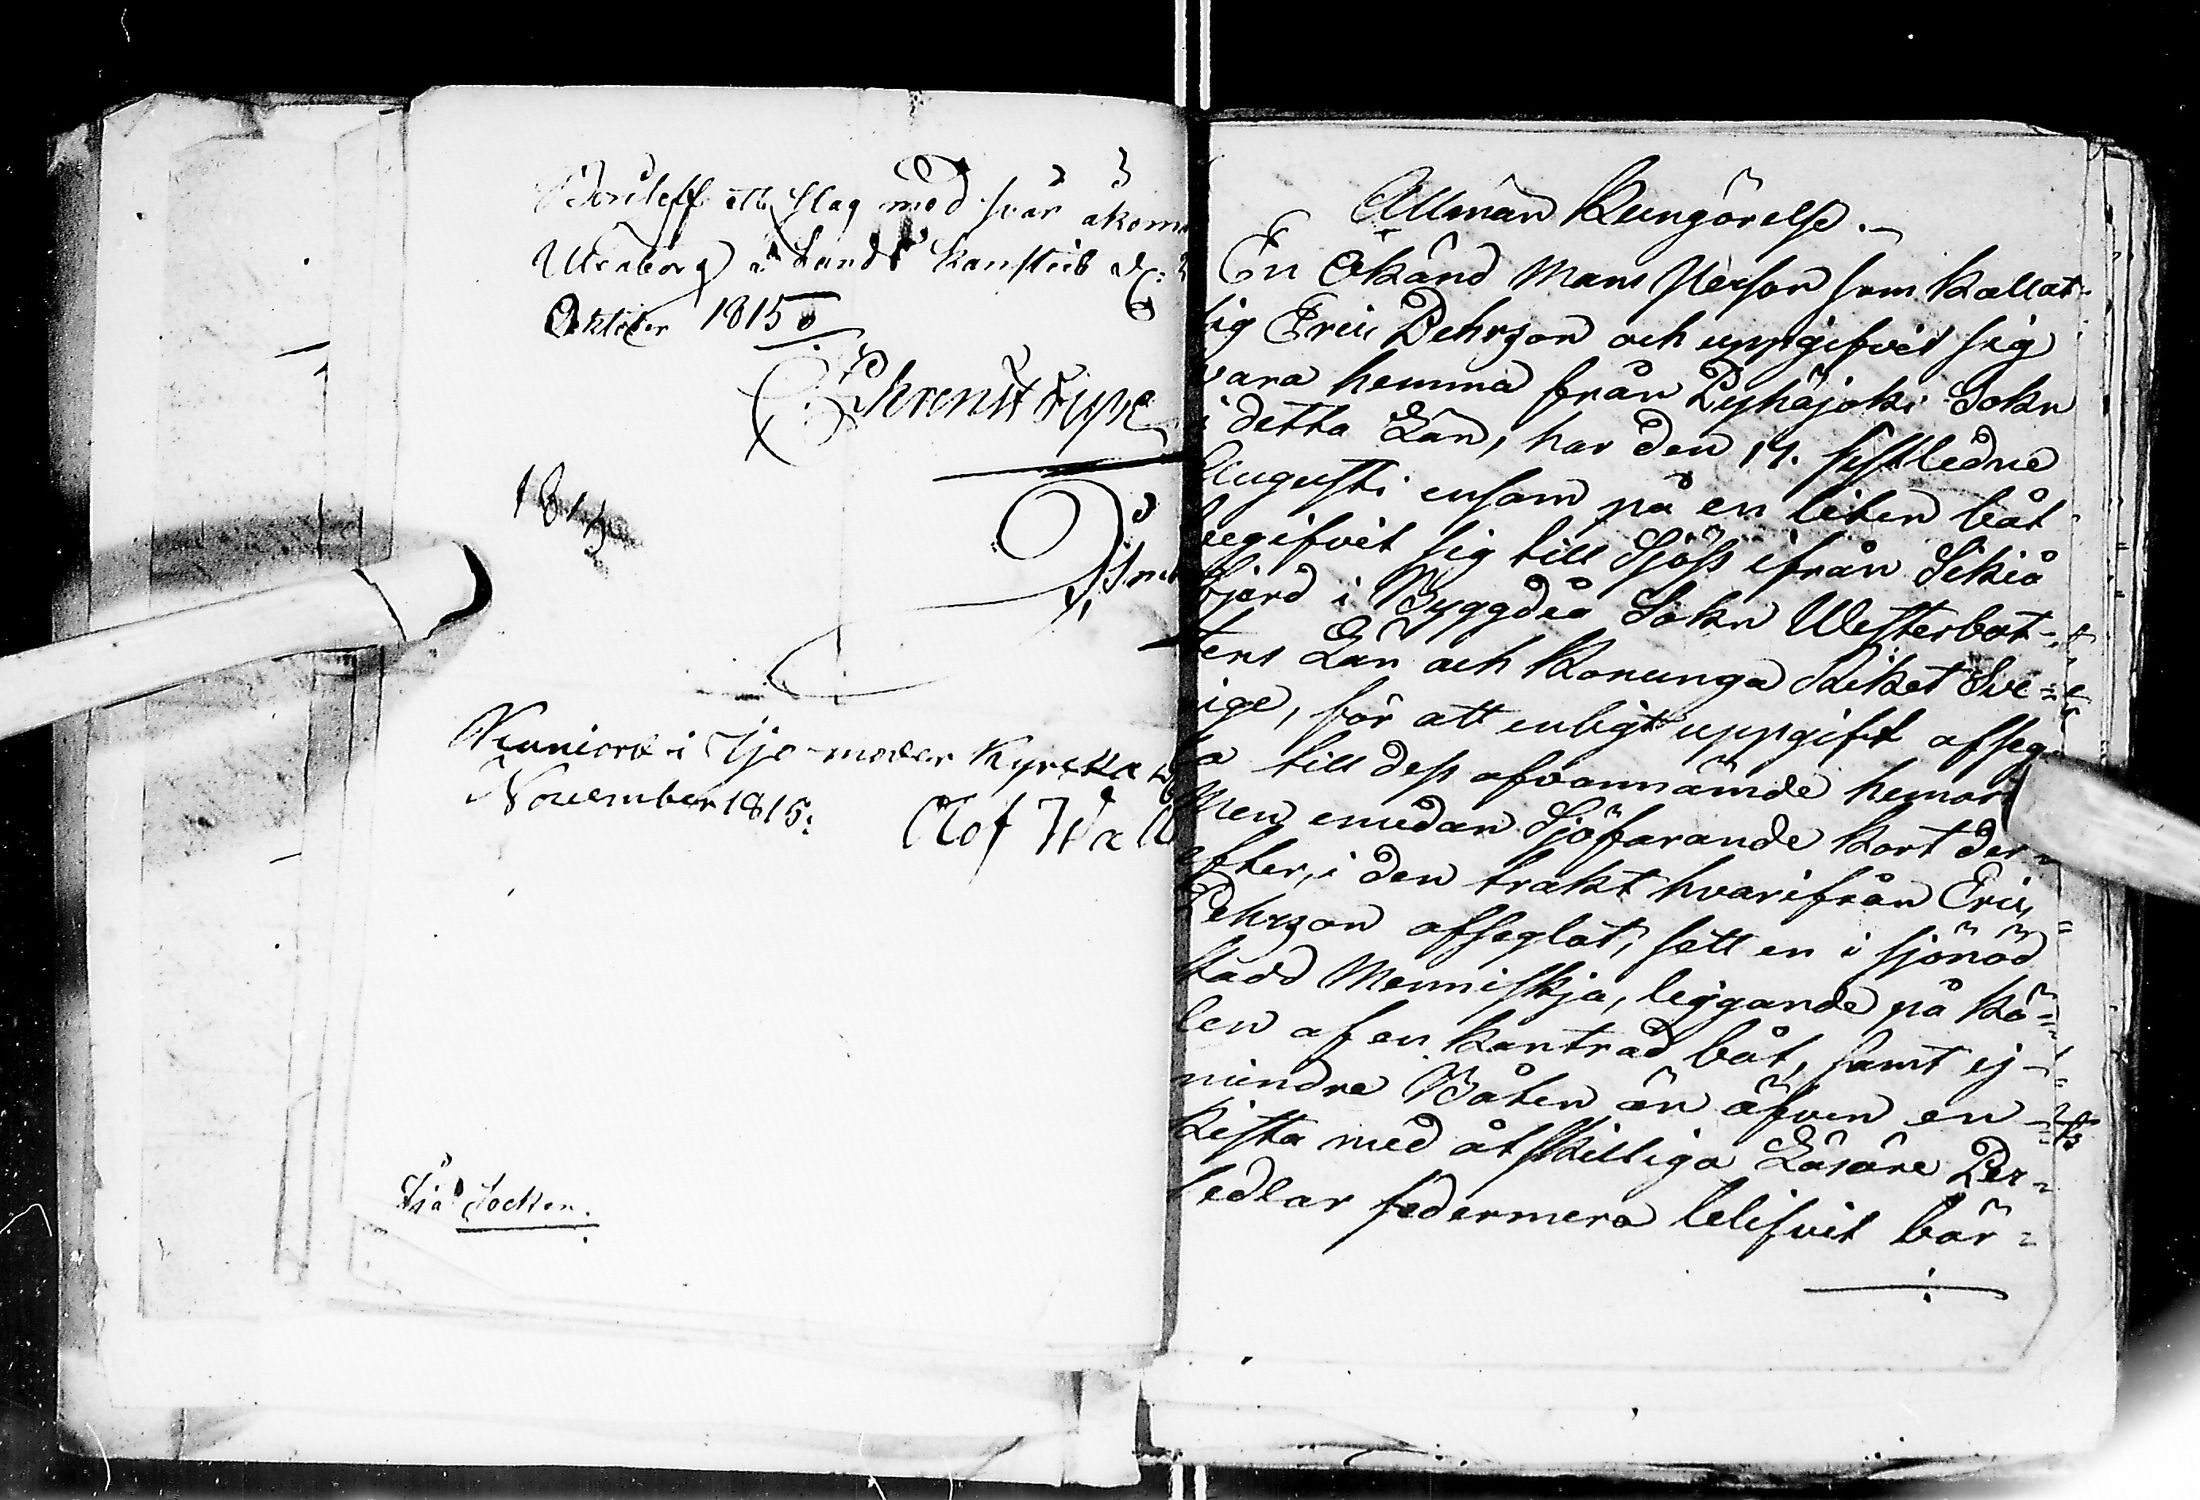 ett slag med svår åkom
Uleåborg å Lands Kansliet d.
October 1815
Ehrenstolpe
1815
Kunniord i Ijo moder Kyrcka
November 1815:
Olof Wall
Ijå Socken.
Allmän Kungörelse.
En Okänd Mans Person som kallat
sig Eric Pehrzon och uppgifvit sig
vara hemma från Pyhäjoki Sokn
i detta Län, har den 14. sistledne
Augusti ensam på en liten båt
begifvit sig till Sjöss ifrån Sikeå
fjerd i Byggdeå Sokn Westerbot-
tens Län och Konunga Riket Sve-
rige, för att enligt uppgift afseg-
la till dess ofvannämde hemort
Men emedan Sjöfarande kort der-
efter, i den trakt hvarifrån Eric
Pehrzon afseglat, sett en i sjönöd
stadd Menniskja, liggande på kö-
len af en kantrad båt, samt ej
mindre Båten än äfven en
Kista med åtskilliga Läsare Per-
sedlar sedermera blifvit bär-